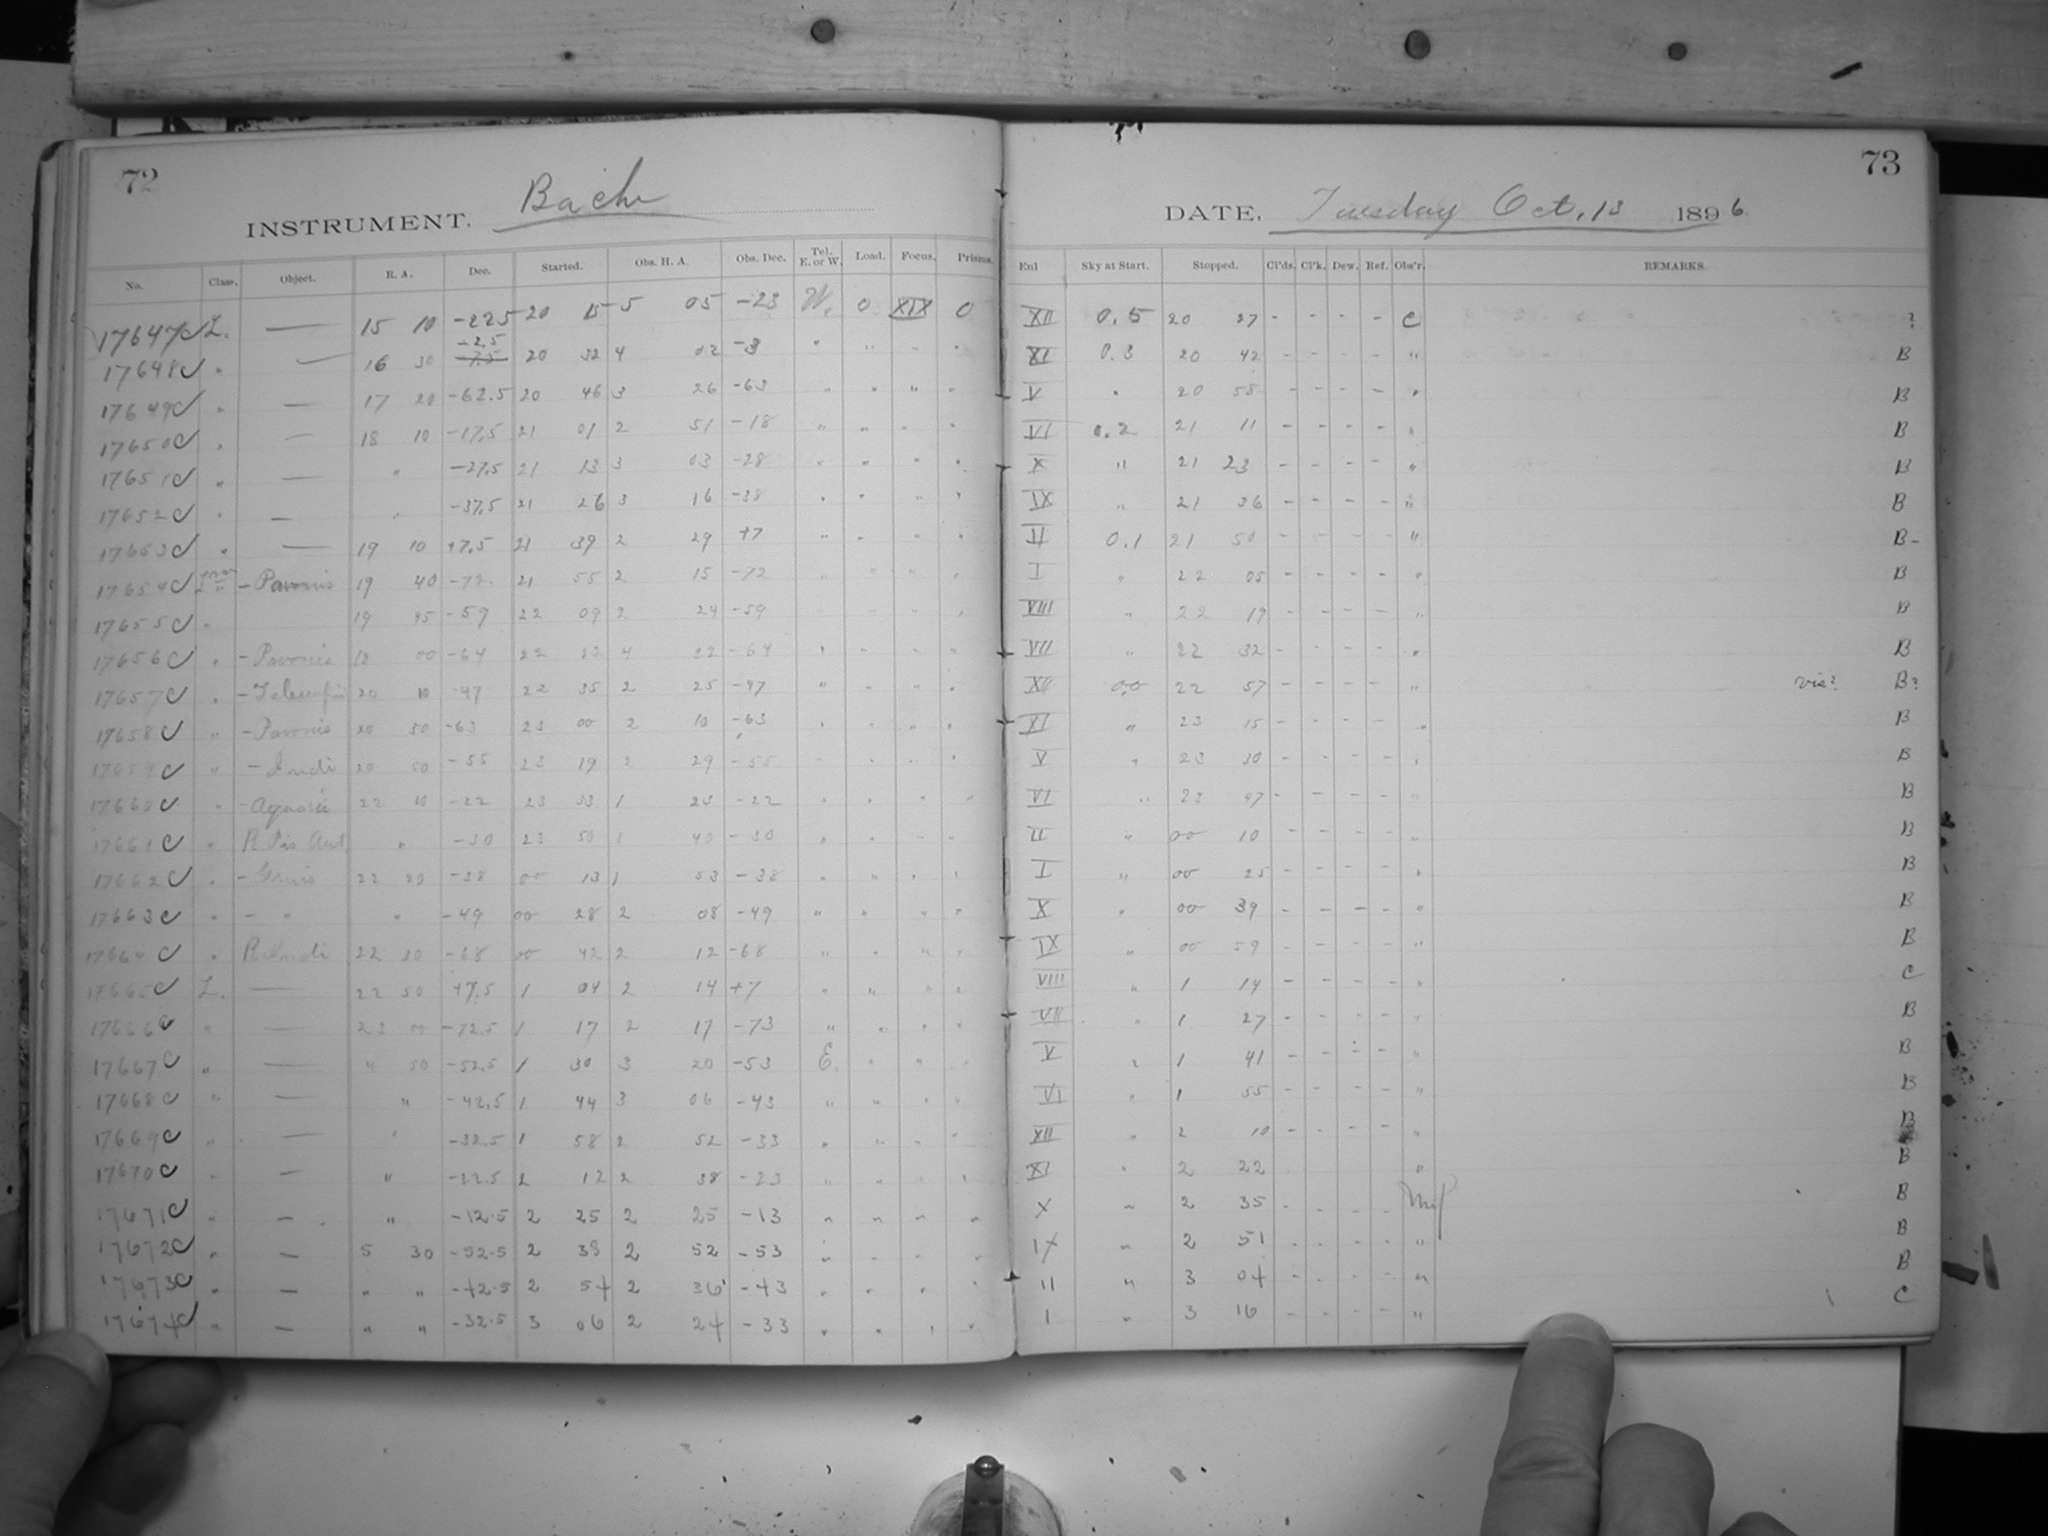 72
INSTRUMENT. Bache
No. Class. Object. R. A. Dec. Started. Obs. H. A. Obs. Dec. Tel. E. or W. Load. Focus. Prisms.
17647 C L. — 15 10 -22.5 20 15 5 05 -23 W. 0 XIX 0
-2.5
17648 C " — 16 30 -7.5 20 32 4 02 -3 " " " "
17649 C " — 17 20 -62.5 20 46 3 26 -63 " " " "
17650 C " — 18 10 -17.5 21 01 2 51 -18 " " " "
17651 C " — " -27.5 21 13 3 03 -28 " " " "
17652 C " — " -37.5 21 26 3 16 -38 " " " "
17653 C " — 19 10 +7.5 21 39 2 29 +7 " " " "
17654 C " - Pavonis 19 40 -72 21 55 2 15 -72 " " " "
17655 C " 19 45 -59 22 09 2 24 -59 " " " "
17656 C " - Pavonis 18 00 -64 22 22 4 22 -64 " " " "
17657 C " - 20 10 -47 22 35 2 25 -47 " " " "
17658 C " - Pavonis 20 50 -63 23 00 2 10 -63 " " " "
17659 C " - Indi 20 50 -55 23 19 2 29 -55 " " " "
17660 C " - Aquarii 22 10 -22 23 33 1 23 -22 " " " "
17661 C " R Pis Aust. " -30 23 50 1 40 -30 " " " "
17662 C " - Gruis 22 20 -38 00 13 1 53 -38 " " " "
17663 C " - " " -49 00 28 2 08 -49 " " " "
17664 C " R Indi 22 30 -68 00 42 2 12 -68 " " " "
17665 C L. — 22 50 +7.5 1 04 2 14 +7 " " " "
17666 C " — 23 00 -72.5 1 17 2 17 -73 " " " "
17667 C " — 4 50 -52.5 1 30 3 20 -53 E. " " "
17668 C " — " -42.5 1 44 3 06 -43 " " " "
17669 C " — " -32.5 1 58 2 52 -33 " " " "
17670 C " — " -22.5 2 12 2 38 -23 " " " "
17671 C " — " -12.5 2 25 2 25 -13 " " " "
17672 C " — 5 30 -52.5 2 38 2 52 -53 " " " "
17673 C " — " " -42.5 2 54 2 36 -43 " " " "
17674 C " — " " -32.5 3 06 2 24 -33 " " " "
73
DATE, Tuesday Oct. 13 1896
Enl Sky at Start. Stopped. Cl'ds. Cl'k. Dew. Ref. Obs'r. REMARKS.
XII 0.5 20 27 - - - - C ?
XI 0.3 20 42 - - - - " B
V " 20 58 - - - - " B
VI 0.2 21 11 - - - - " B
X " 21 23 - - - - " B
IX " 21 36 - - - - " B
II 0.1 21 50 - - - - " B-
I " 22 05 - - - - " B
VIII " 22 19 - - - - " B
VII " 22 32 - - - - " B
XII 0.0 22 57 - - - - " vis? B?
XI " 23 15 - - - - " B
V " 23 30 - - - - " B
VI " 23 47 - - - - " B
II " 00 10 - - - - " B
I " 00 25 - - - - " B
X " 00 39 - - - - " B
IX " 00 59 - - - - " B
VIII " 1 14 - - - - " C
VII " 1 27 - - - - " B
V " 1 41 - - - - " B
VI " 1 55 - - - - " B
XII " 2 10 - - - - " B
XI " 2 22 " B
X " 2 35 - - - - B
IX " 2 51 - - - - " B
II " 3 04 - - - - " B
I " 3 16 - - - - " C